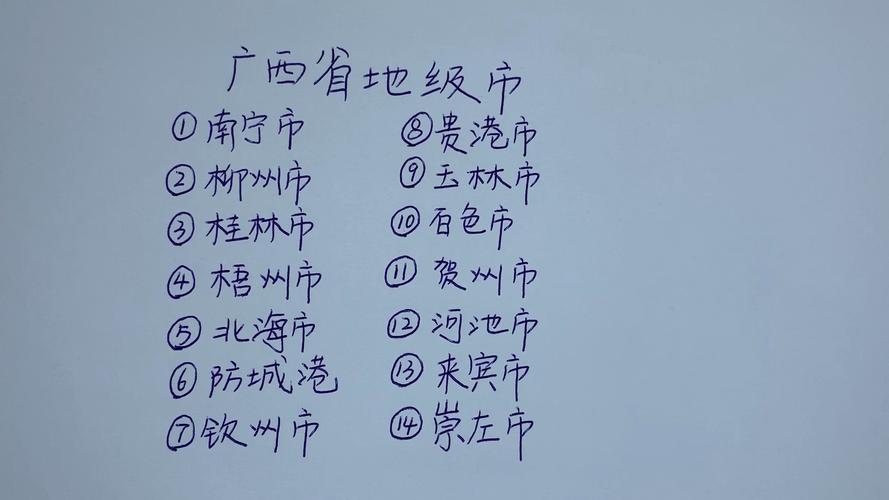 广西省地级市
①南宁市
②柳州市
③桂林市
④梧州市
⑤北海市
⑥防城港
⑦钦州市
⑧贵港市
⑨玉林市
⑩百色市
⑪贺州市
⑫河池市
⑬来宾市
⑭崇左市